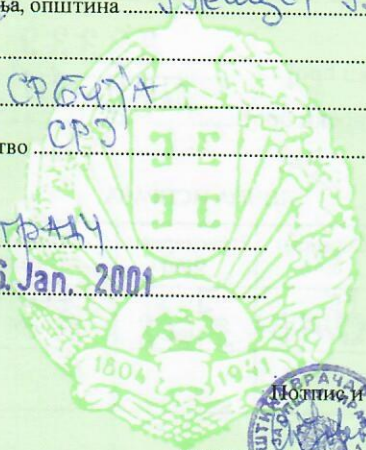 ња, општина
СРБИЈА
тво СРЈ
ГРАДУ
6. Jan. 2001
1804 1941
Потпис и
ВРАЧАР